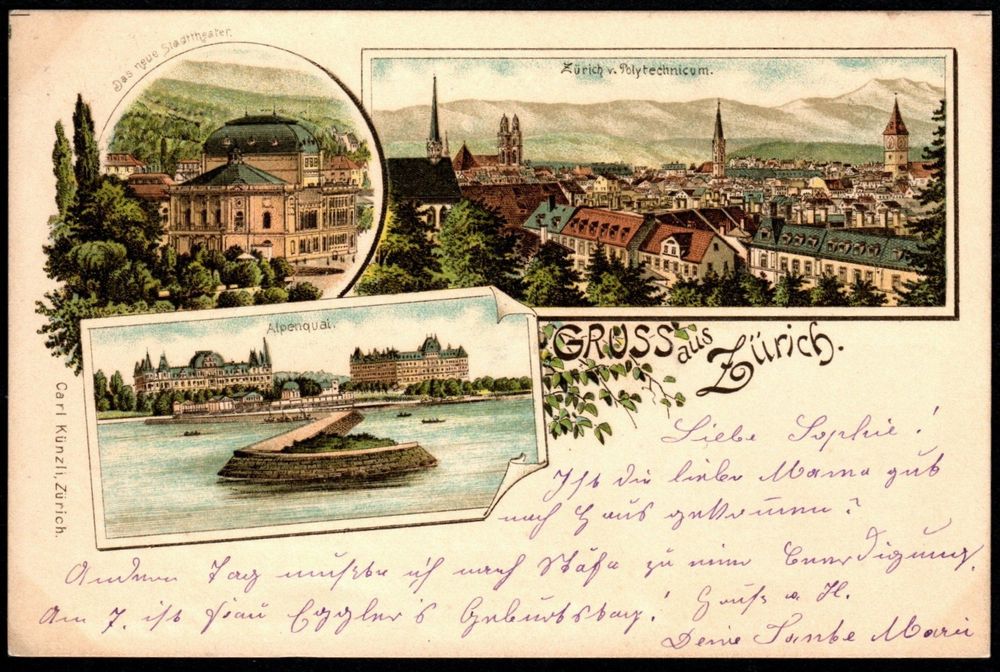 Das neue Stadttheater.
Zürich v. Polytechnicum.
Alpenquai.
GRUSS aus Zürich.
Carl Künzli, Zürich.
Liebe Sophie!
Ist die liebe Mama gut
nach Haus gekommen?
Andern Tag mußte ich nach Stäfa zu einer Beerdigung.
Am 7. ist Frau Eggler's Geburtstag! Gruß
Deine Tante Marie